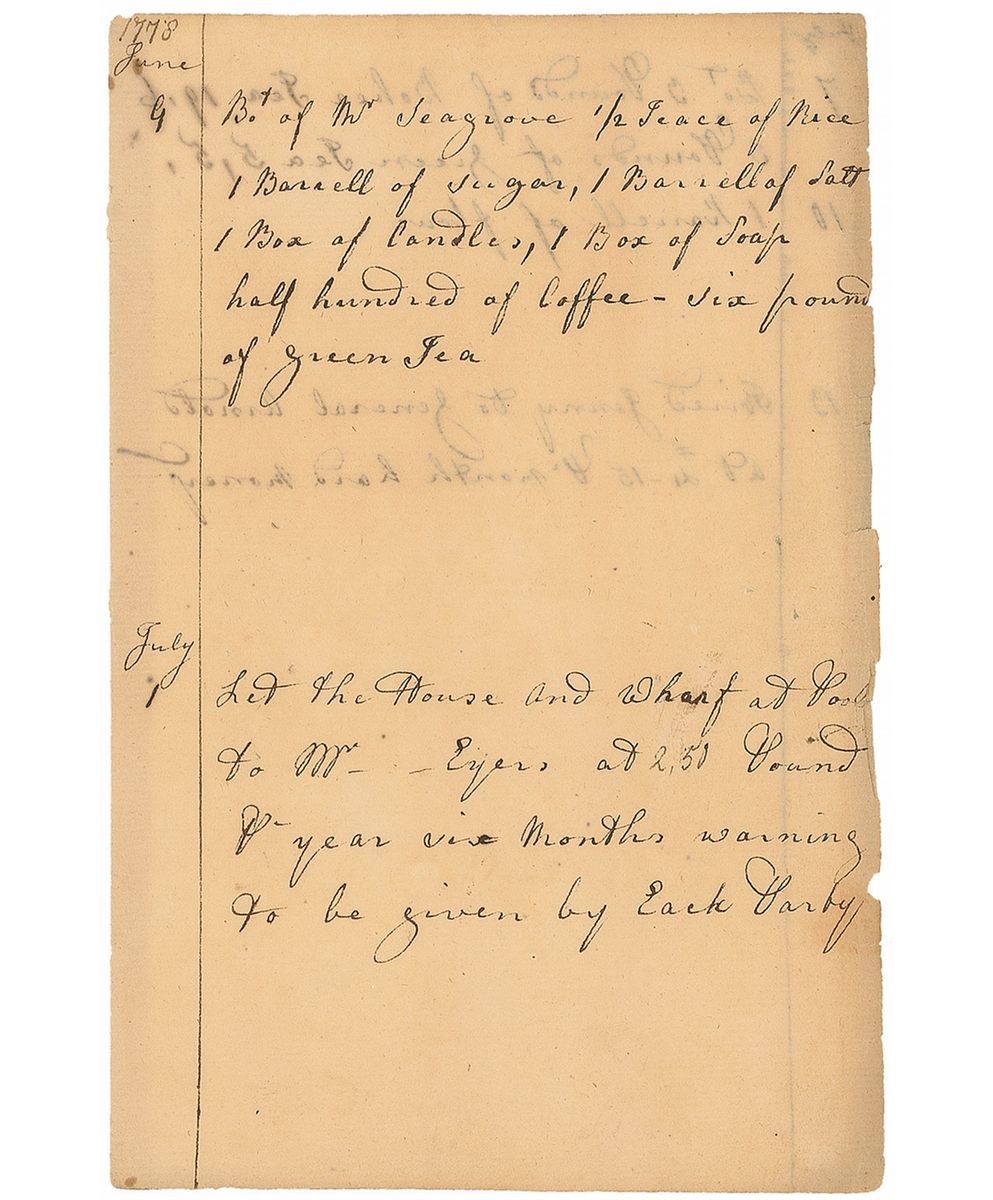 1778
June
9 Bot of Mr Seagrove 1/2 Teace of Rice
1 Barrell of sugar, 1 Barrell of Salt
1 Box of Candles, 1 Box of Soap
half hundred of Coffee - six pound
of green Tea
July
1 Let the House and Wharf at
to Mr - - Eyers at 2,50 Pound
Pr year six Months warning
to be given by Each Party